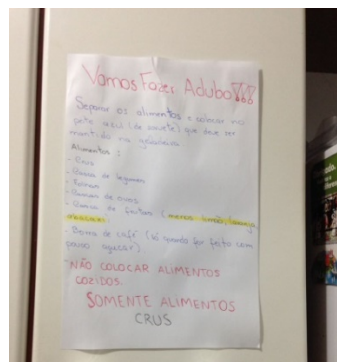 Vamos Fazer Adubo!!!
Separar os alimentos e colocar no
pote azul (de sorvete) que deve ser
mantido na geladeira.
Alimentos:
- Cascas de legumes
- Cascas de ovos
- Cascas de frutas (menos limão, laranja,
- Borra de café (só quando for feito com
pouco açúcar).
- NÃO COLOCAR ALIMENTOS
COZIDOS.
SOMENTE ALIMENTOS
CRUS